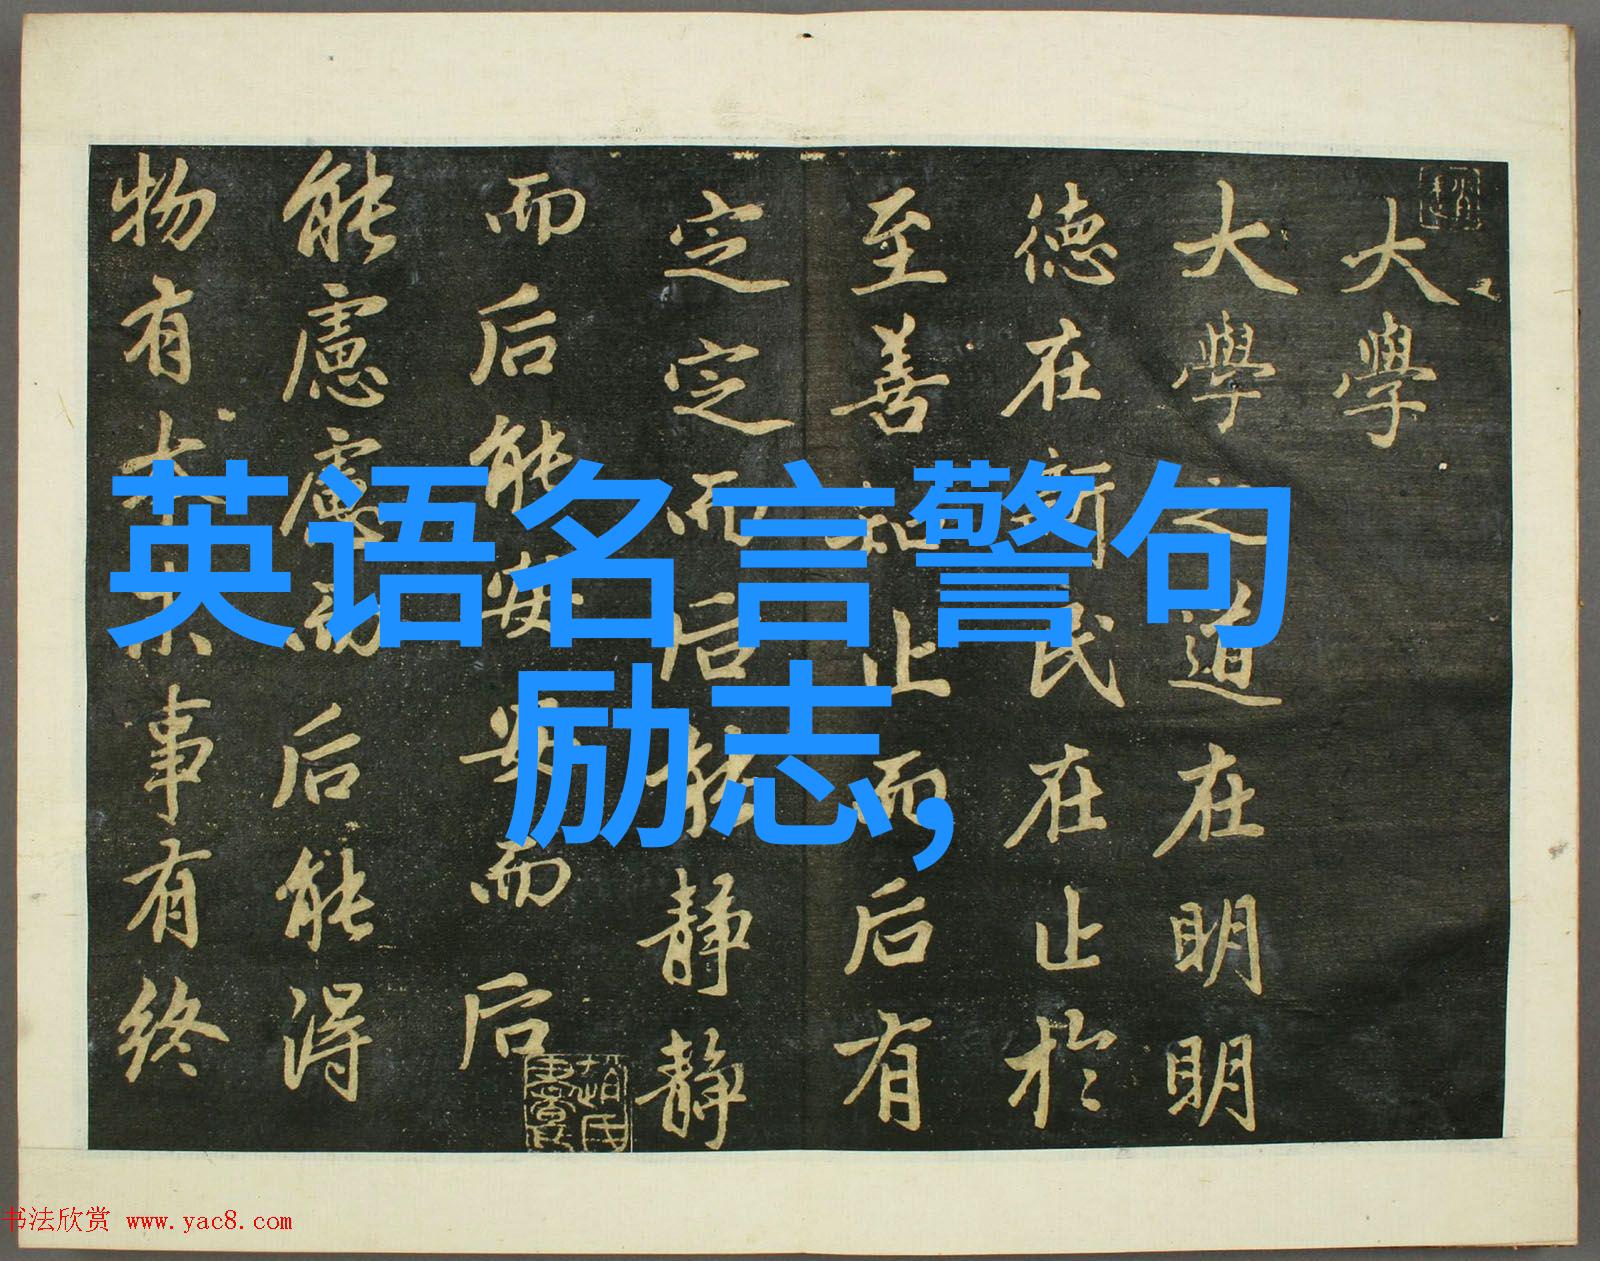 大學
大學之道在明明
德在新民在止於
至善知止而后有
定定而后能静静
而后能安安而后
能慮慮而后能得
物有本末事有終
英语名言警句
励志,
书法欣赏 www.yac8.com